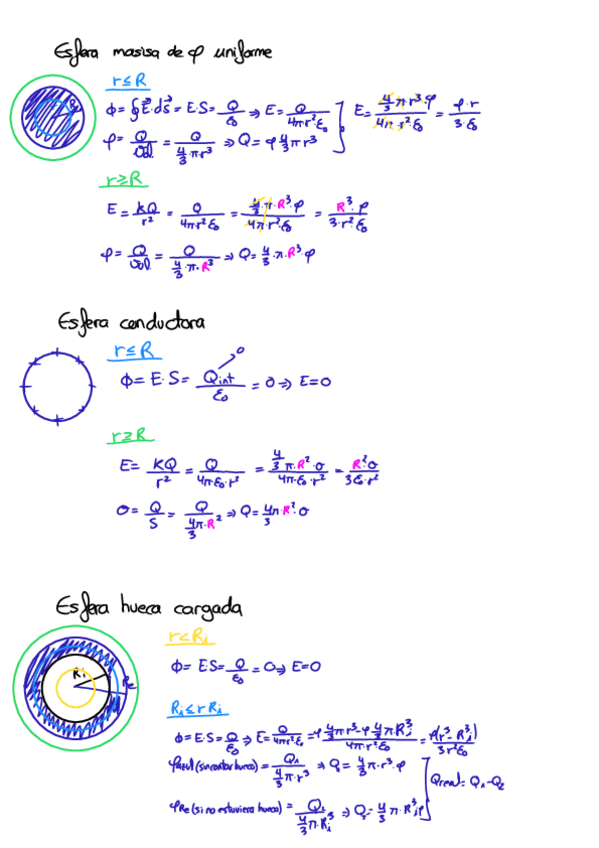 Esfera masisa de φ uniforme
r≤R
R
ϕ= ∮E⃗·dS⃗ = E·S= Q/ε₀ ⇒ E= Q/(4πr²ε₀)
φ= Q/Vol. = Q/(4/3·πr³) ⇒ Q= φ 4/3 π r³
E= (4/3 π·r³·φ)/(4π·r²·ε₀) = (φ·r)/(3·ε₀)
r≥R
E= KQ/r² = Q/(4πr²ε₀) = (4/3·π·R³·φ)/(4π·r²·ε₀) = (R³·φ)/(3·r²·ε₀)
φ= Q/Vol. = Q/(4/3·π·R³) ⇒ Q= 4/3·π·R³·φ
Esfera conductora
r≤R
ϕ= E·S= Qint/ε₀ = 0 ⇒ E=0
0
r≥R
E= KQ/r² = Q/(4π·ε₀·r²) = (4/3 π·R²·σ)/(4π·ε₀·r²) = (R²·σ)/(3ε₀·r²)
σ= Q/S = Q/(4π/3·R²) ⇒ Q= 4π/3·R²·σ
Esfera hueca cargada
Ri
Re
r<Ri
ϕ= ES= Q/ε₀ = 0 ⇒ E=0
Ri≤rRi
ϕ= E·S= Q/ε₀ ⇒ E= Q/(4πr²ε₀) = (φ 4/3 πr³-φ 4/3 πRi³)/(4πr²ε₀) = φ(r³-Ri³)/(3r²ε₀)
φazul (sin contar hueco) = Q₁/(4/3 π·r³) ⇒ Q₁= 4/3 π·r³·φ
φRe (si no estuviera hueca) = Q₂/(4/3 π·Ri³) ⇒ Q₂= 4/3 π·Ri³φ
Qreal= Q₁-Q₂